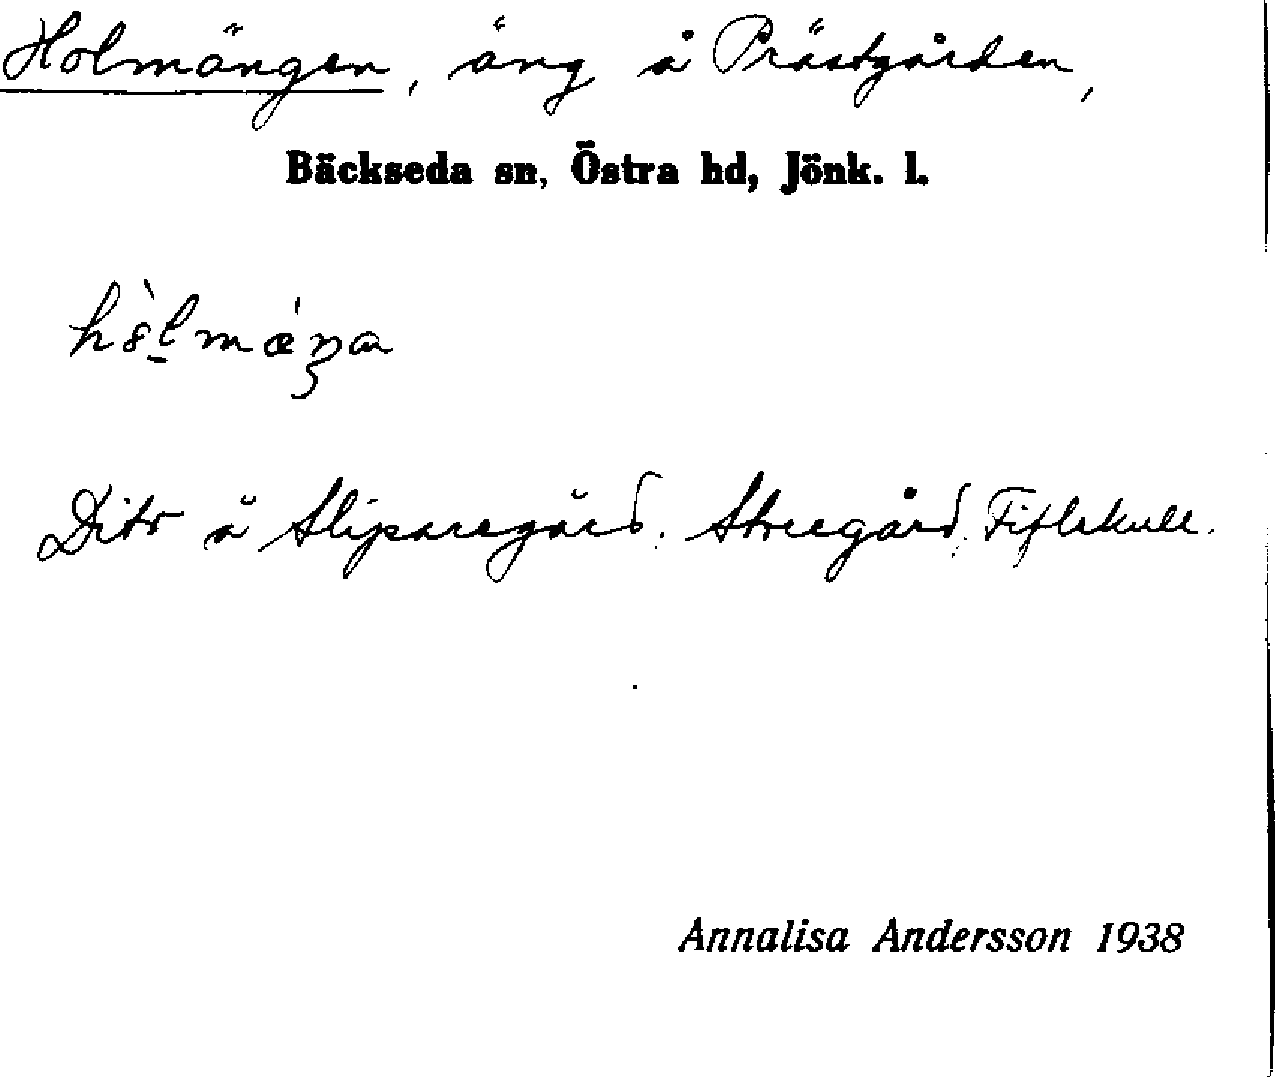 Holmängen, äng å Prästgården,
Bäckseda sn, Östra hd, Jönk. l.
Dito å Sliparegård. Storegård, Fiflekull.
Annalisa Andersson 1938